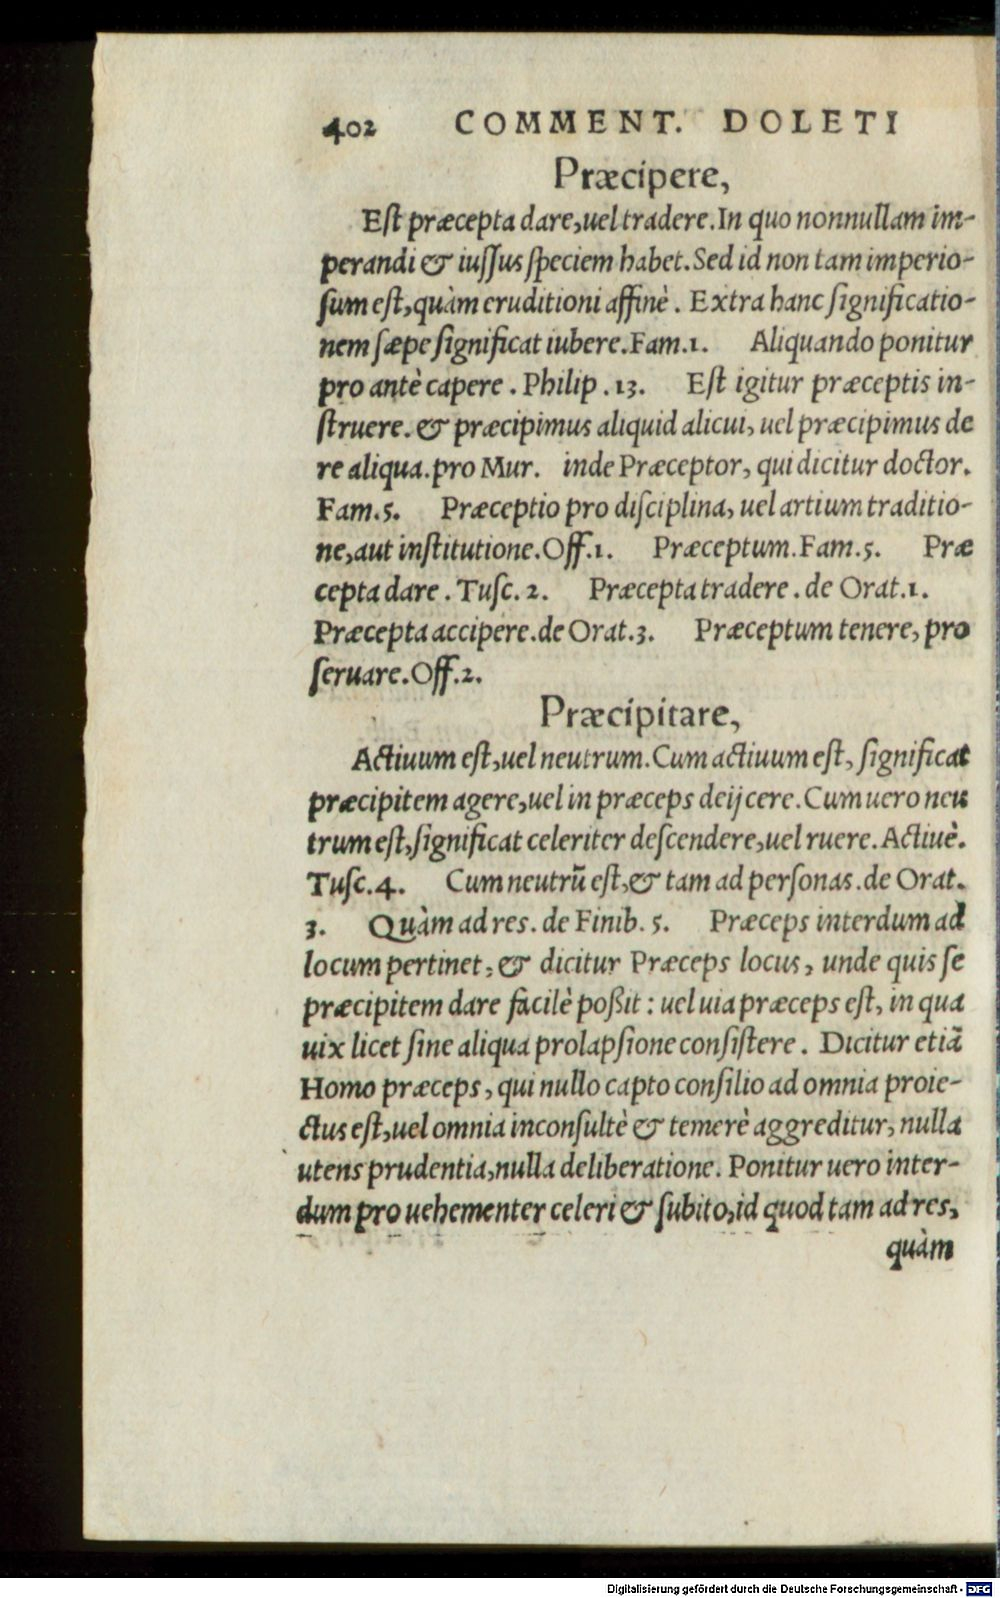 402 COMMENT. DOLETI
Præcipere,
Eſt præcepta dare, uel tradere. In quo nonnullam im-
perandi & iuſſus ſpeciem habet. Sed id non tam imperio-
ſum eſt, quàm eruditioni affinè. Extra hanc ſignificatio-
nem ſæpe ſignificat iubere. Fam. 1. Aliquando ponitur
pro antè capere. Philip. 13. Eſt igitur præceptis in-
ſtruere. & præcipimus aliquid alicui, uel præcipimus de
re aliqua. pro Mur. inde Præceptor, qui dicitur doctor.
Fam. 5. Præceptio pro diſciplina, uel artium traditio-
ne, aut inſtitutione. Off. 1. Præceptum. Fam. 5. Præ
cepta dare. Tuſc. 2. Præcepta tradere. de Orat. 1.
Præcepta accipere. de Orat. 3. Præceptum tenere, pro
ſeruare. Off. 2.
Præcipitare,
Actiuum eſt, uel neutrum. Cum actiuum eſt, ſignificat
præcipitem agere, uel in præceps deijcere. Cum uero neu
trum eſt, ſignificat celeriter deſcendere, uel ruere. Actiuè.
Tuſc. 4. Cum neutrũ eſt, & tam ad perſonas. de Orat.
3. Quàm ad res. de Finib. 5. Præceps interdum ad
locum pertinet, & dicitur Præceps locus, unde quis ſe
præcipitem dare facilè poßit: uel uia præceps eſt, in qua
uix licet ſine aliqua prolapſione conſiſtere. Dicitur etiã
Homo præceps, qui nullo capto conſilio ad omnia proie-
ctus eſt, uel omnia inconſultè & temerè aggreditur, nulla
utens prudentia, nulla deliberatione. Ponitur uero inter-
dum pro uehementer celeri & ſubito, id quod tam ad res,
quàm
Digitalisierung gefördert durch die Deutsche Forschungsgemeinschaft - DFG